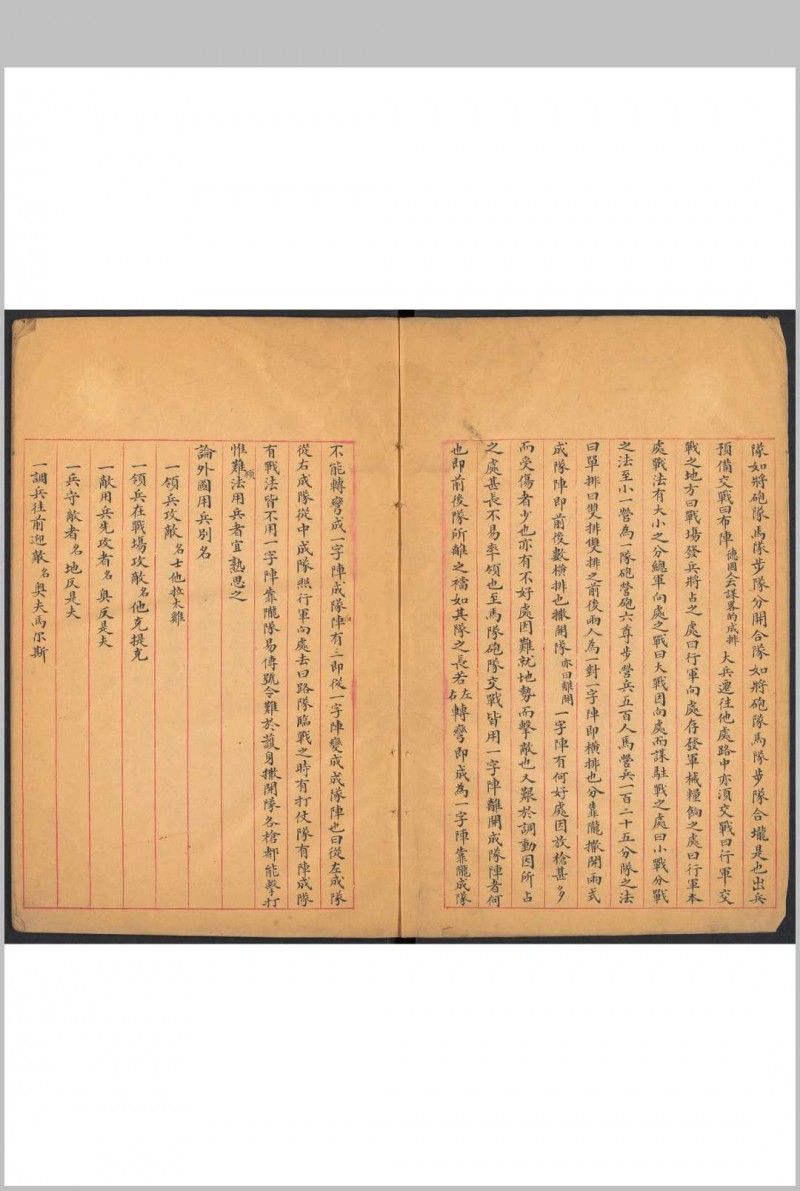 隊如將砲隊馬隊步隊分開合隊如將砲隊馬隊步隊合壠是也出兵
預備交戰曰布陣德國人会謀畧的成排大兵遷往他處路中亦須交戰曰行軍交
戰之地方曰戰場發兵將占之處曰行軍向處存發軍械糧餉之處曰行軍本
處戰法有大小之分總軍向處之戰曰大戰因向處而謀駐戰之處曰小戰分戰
之法至小一營為一隊砲營砲六尊步營兵五百人馬營兵一百二十五分隊之法
曰單排曰雙排雙排之前後兩人為一對一字陣即橫排也分靠隴撒開兩式
成隊陣即前後數橫排也撒開隊亦曰離開一字陣有何好處因放槍甚多
而受傷者少也亦有不好處因難就地勢而擊敵也又艱於調動因所占
之處甚長不易率領也至馬隊砲隊交戰皆用一字陣離開成隊陣者何
也即前後隊所離之襠如其隊之長若左右轉彎即成為一字陣靠隴成隊
不能轉彎成一字陣成隊陣有三即從一字陣變成成隊陣也曰從左成隊
從右成隊從中成隊照行軍向處去曰路隊臨戰之時有打仗隊有陣成隊
有戰法皆不用一字陣靠隴隊易傳號令難於護身撒開隊各槍都能擊打
惟難領法用兵者宜熟思之
論外國用兵別名
一領兵攻敵名士他拉太雞
一領兵在戰場攻敵名他克提克
一敵用兵先攻者名奧反是夫
一兵守敵者名地反是夫
一調兵往前迎敵名奧夫馬尔斯